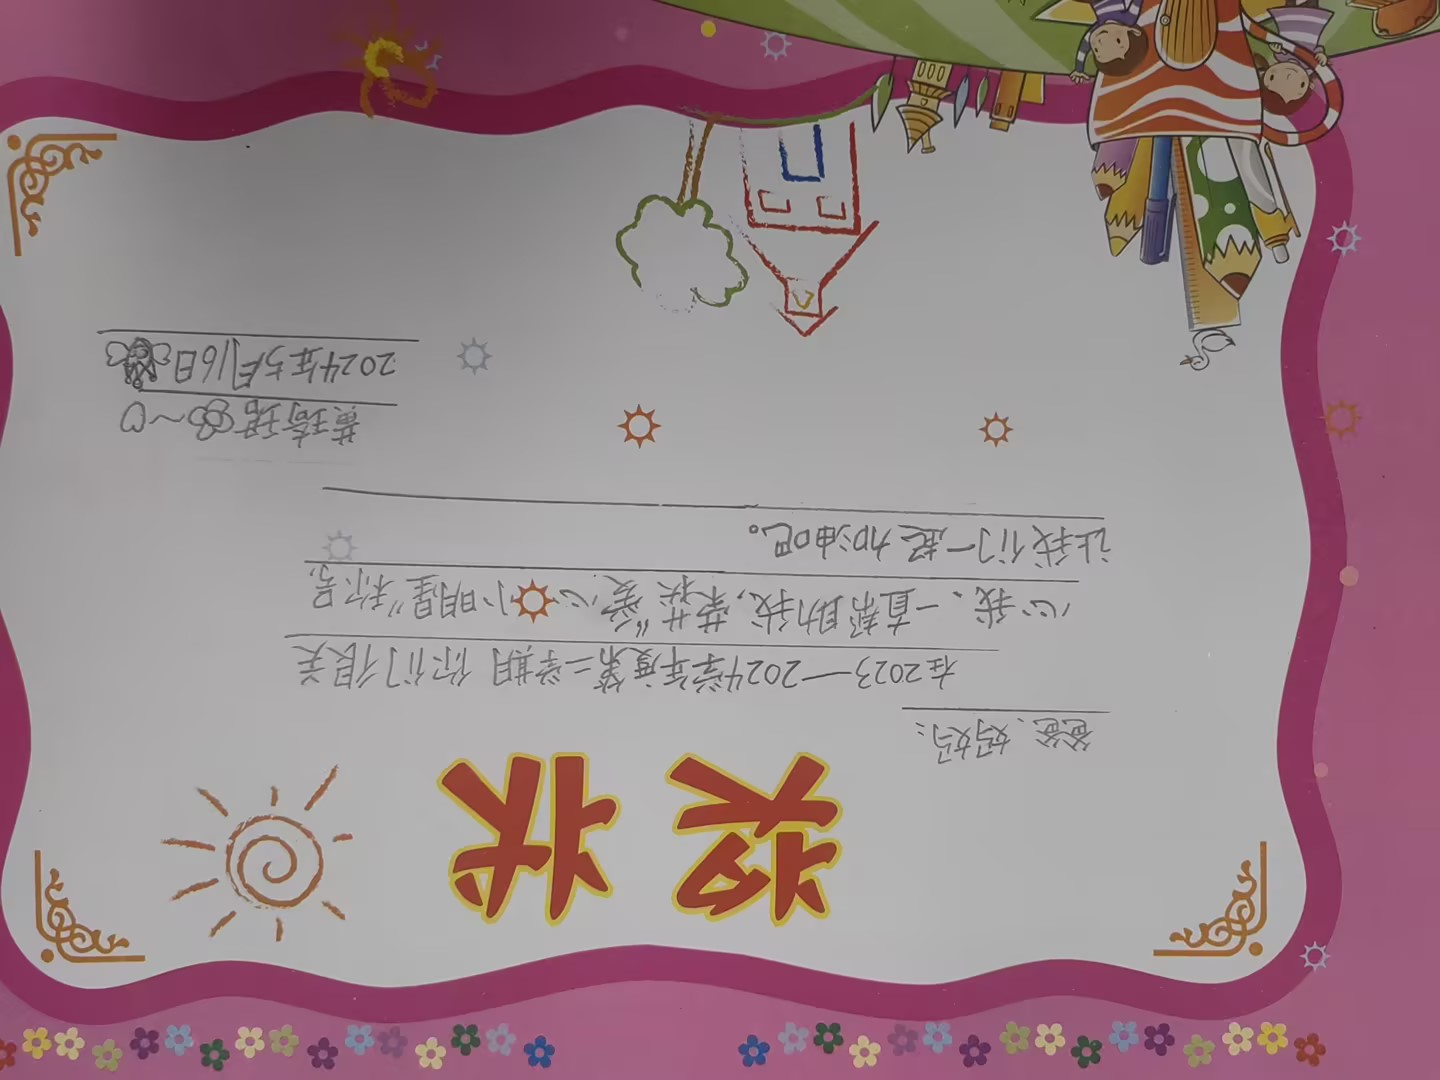 奖状
爸爸、妈妈:
在2023—2024学年度第二学期 你们很关
心我、一直帮助我,荣获“爱心小明星”称号,
让我们一起加油吧。
黄琦
2024年5月16日